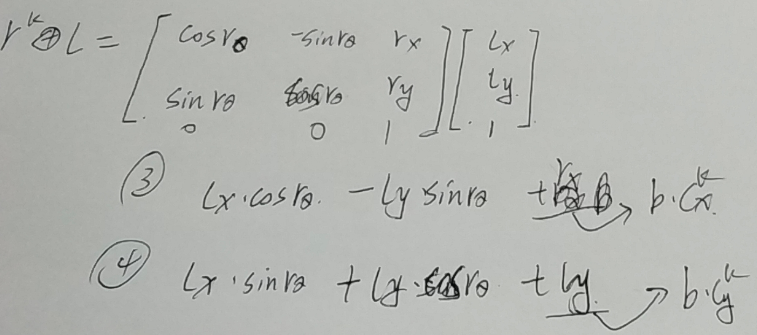 r^k ⊕ L = [ cos rθ -sin rθ rx ] [ Lx ]
[ sin rθ cos rθ ry ] [ Ly ]
[ 0 0 1 ] [ 1 ]
③ Lx·cos rθ. - Ly sin rθ + rx → b·C_x^k
④ Lx·sin rθ + Ly·cos rθ + ly. → b·C_y^k